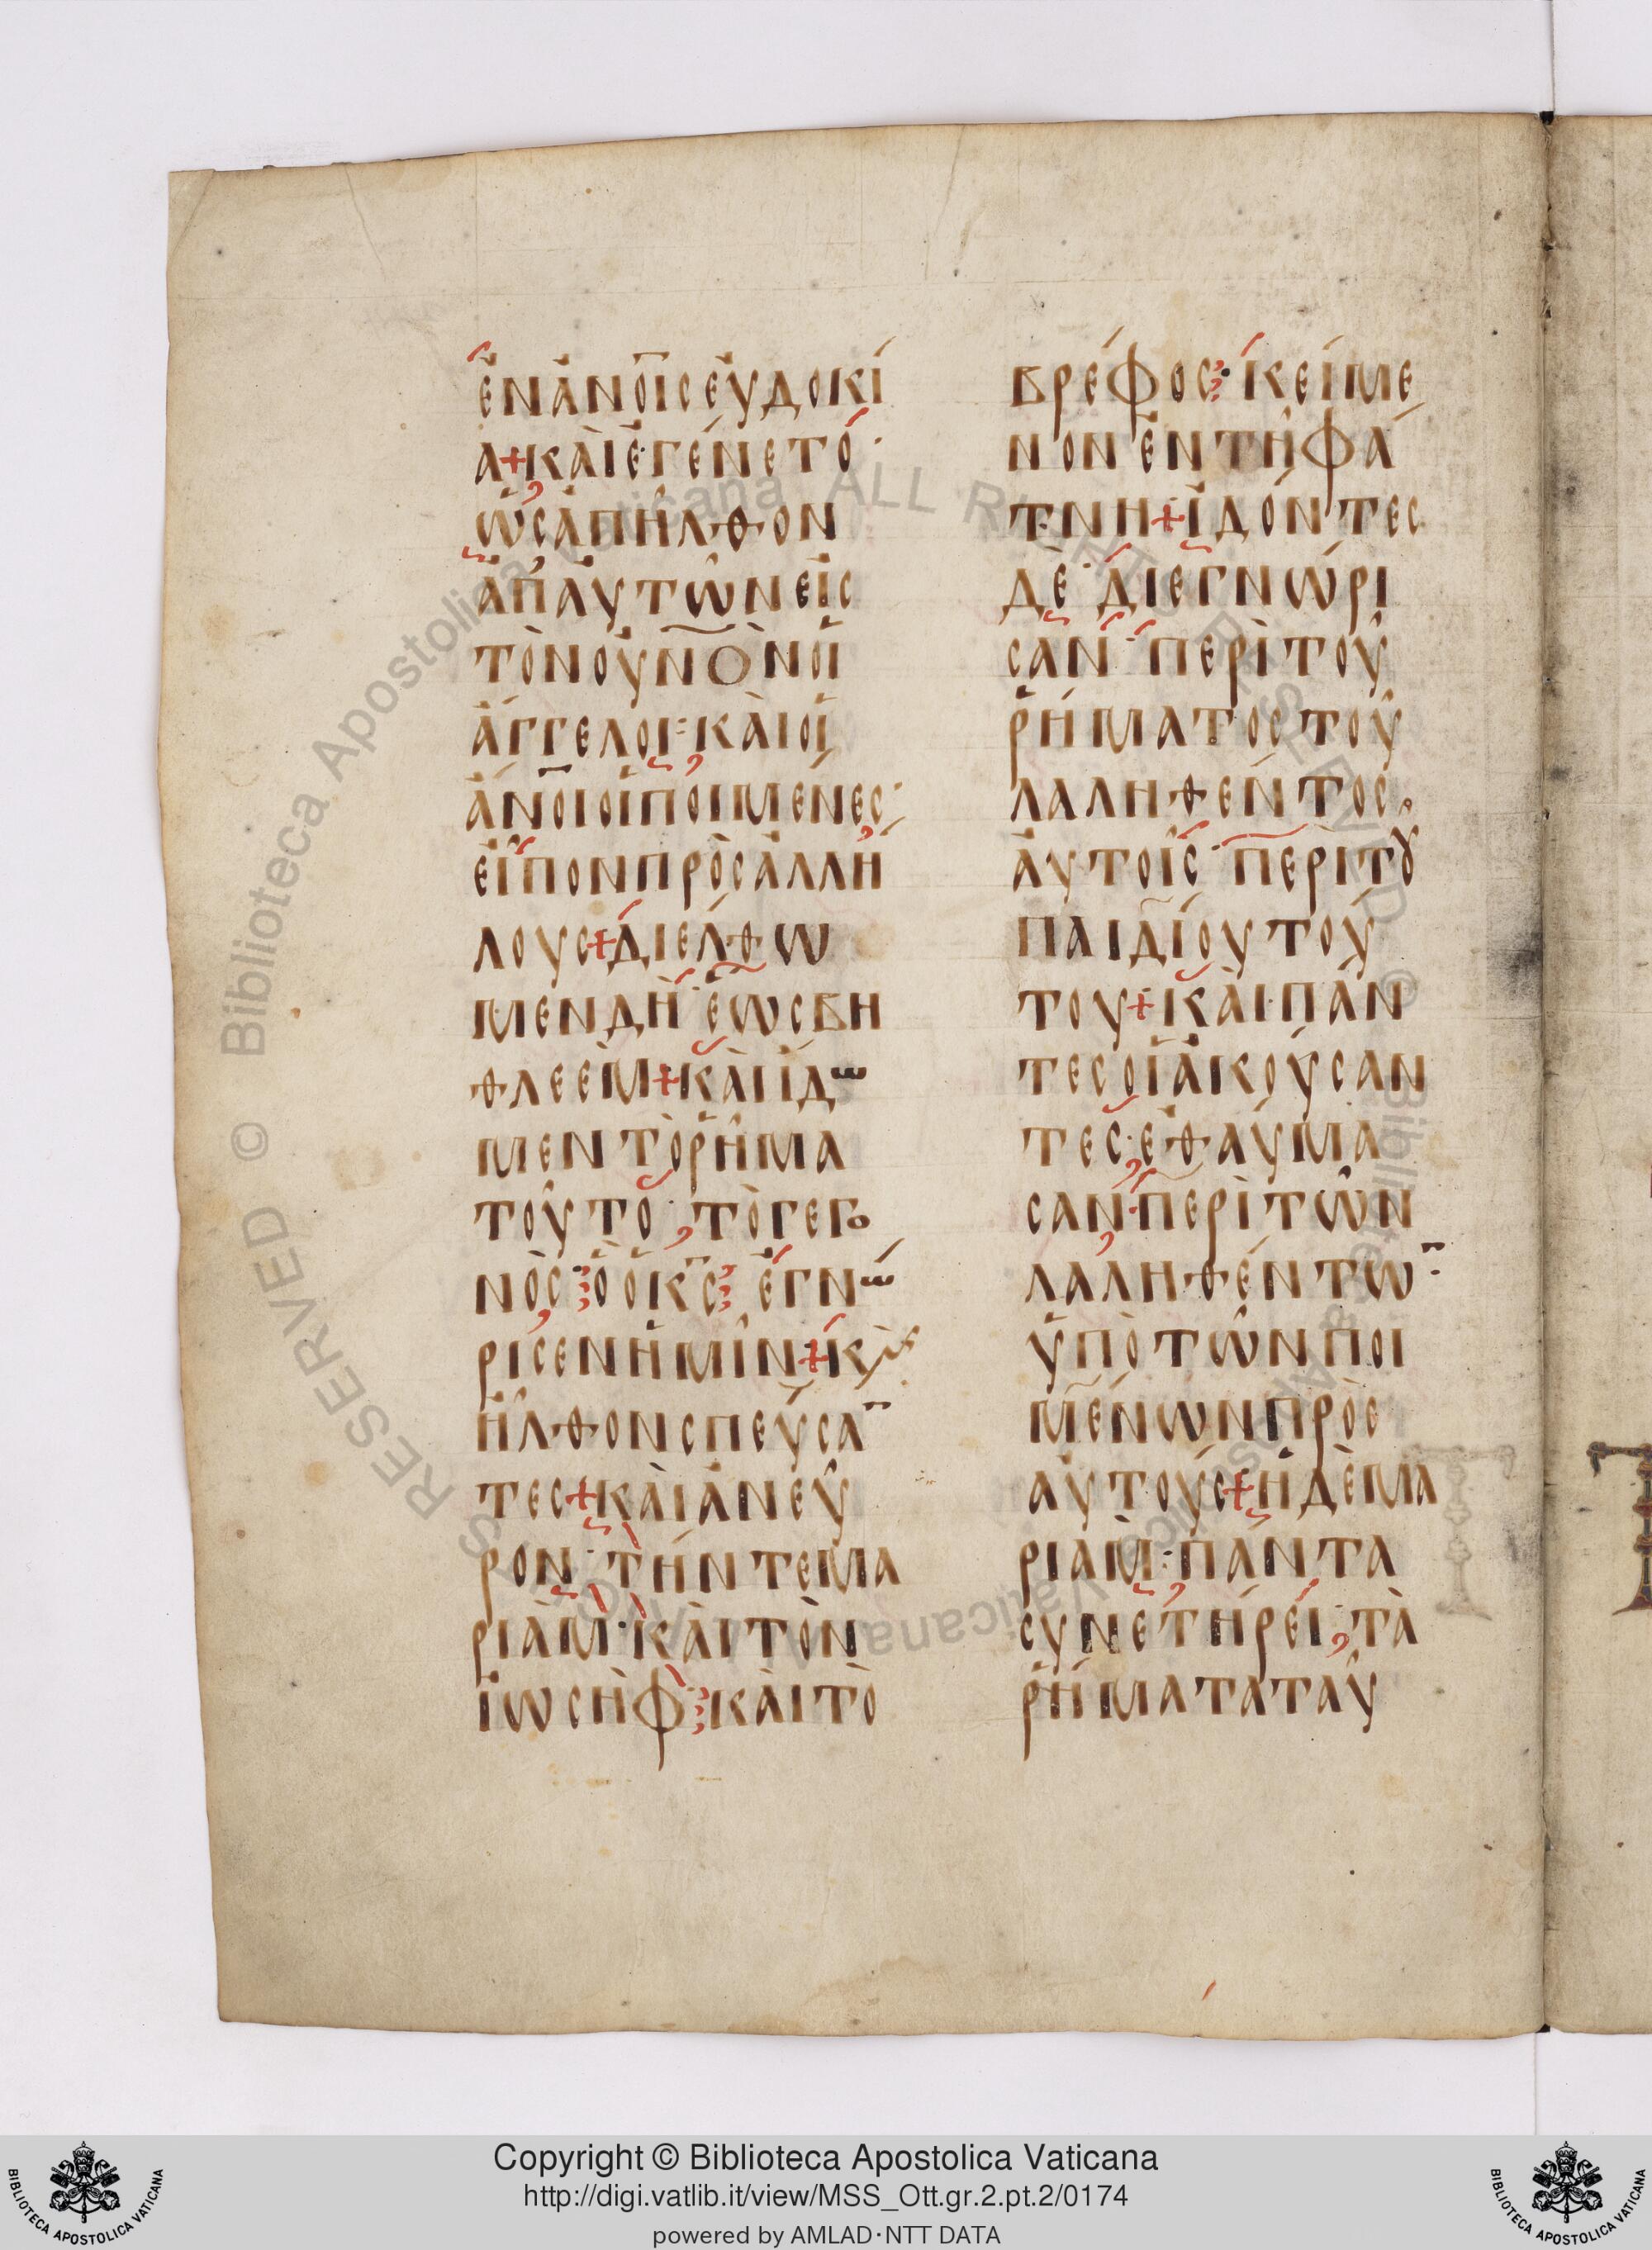 ἐν ἀν̅οις εὐδοκί
α + καὶ ἐγένετο
ὡς ἀπῆλθον
ἀπ' αὐτῶν εἰς
τὸν οὐν̅ον οἱ
ἄγγελοι · καὶ οἱ
ἄν̅οι οἱ ποιμένες
εἶπον πρὸς ἀλλή
λους + διέλθω
μεν δὴ ἕως βη
θλεὲμ + καὶ ἴδω
μεν τὸ ῥῆμα
τοῦτο · τὸ γεγο
νὸς ὃ ὁ κ̅ς ἐγνώ
ρισεν ἡμῖν + κὶ
ἦλθον σπεύσα̅
τες + καὶ ἀνεῦ
ρον · τήν τε μα
ριὰμ · καὶ τὸν
ἰωσὴφ καὶ τὸ
βρέφος · κείμε
νον ἐν τῇ φά
τνη + ἰδόντες
δὲ · διεγνώρι
σαν · περὶ τοῦ
ῥήματος τοῦ
λαληθέντος
αὐτοῖς · περὶ τȣ
παιδίου τού
του + καὶ πάν
τες οἱ ἀκούσαν
τες · ἐθαύμα
σαν · περὶ τῶν
λαληθέντω̅
ὑπὸ τῶν ποι
μένων πρὸς
αὐτούς + ἡ δὲ μα
ριὰμ · πάντα
συνετήρει, τὰ
ῥήματα ταῦ
Copyright © Biblioteca Apostolica Vaticana
http://digi.vatlib.it/view/MSS_Ott.gr.2.pt.2/0174
powered by AMLAD·NTT DATA
BIBLIOTECA APOSTOLICA VATICANA
BIBLIOTECA APOSTOLICA VATICANA